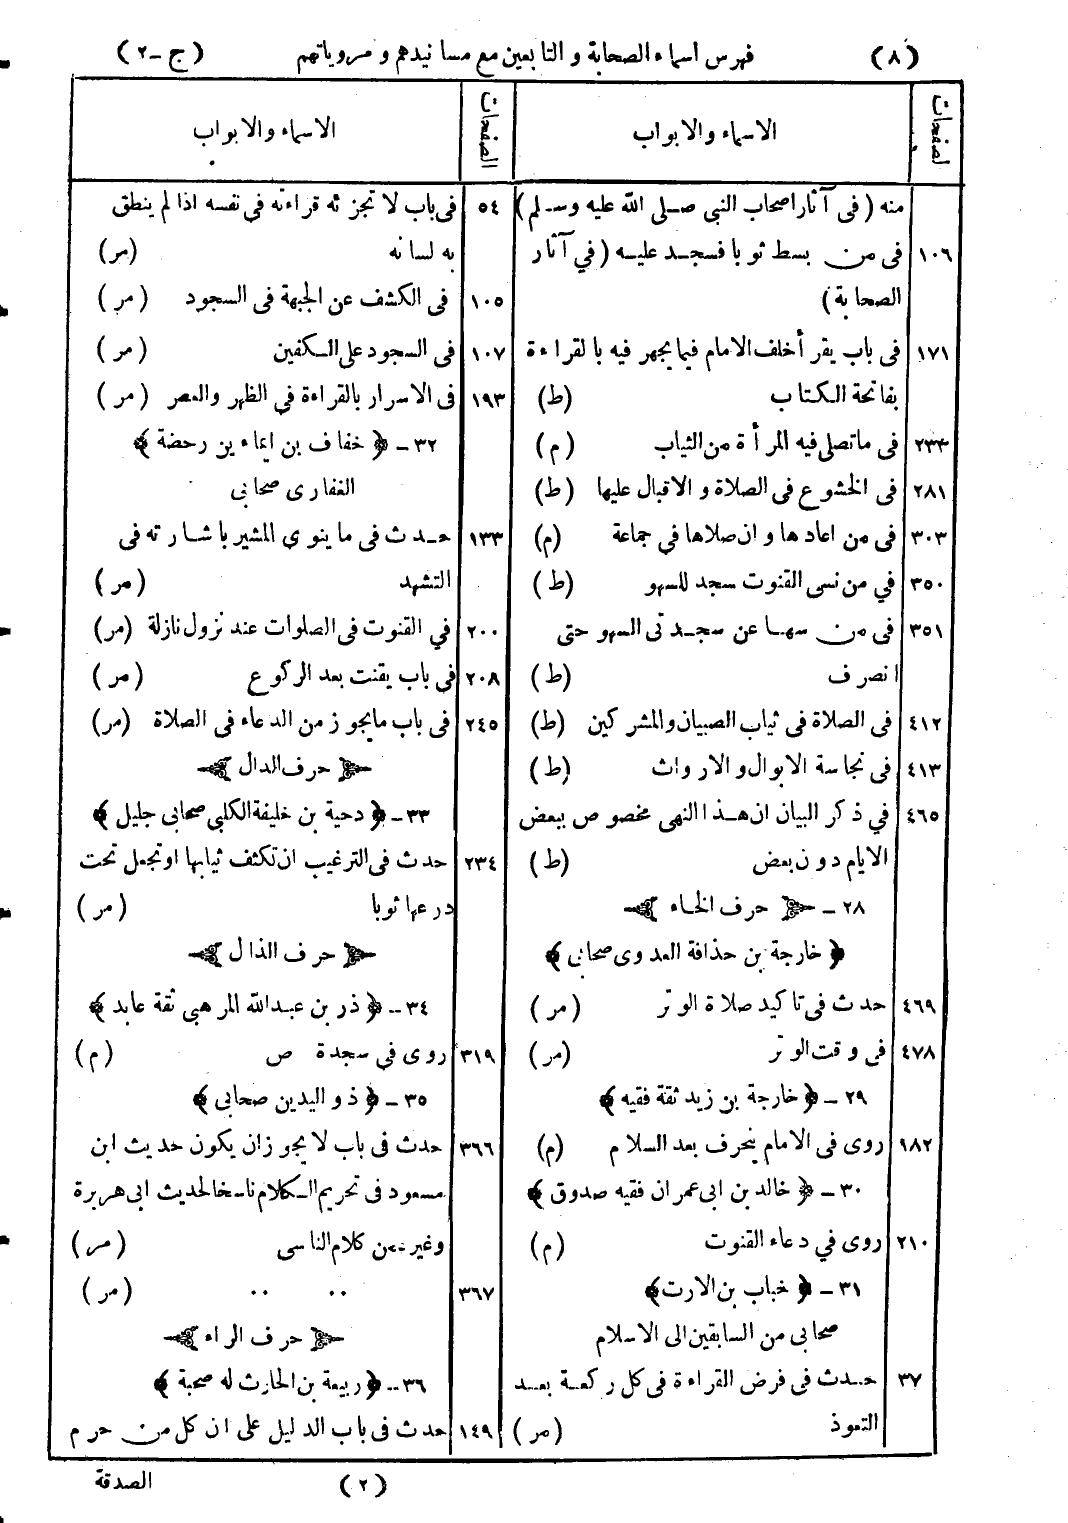 (٨) فهرس اسماء الصحابة والتابعين مع مسانيدهم ومروياتهم (ج-٢)
الصفحات الاسماء والابواب
منه (فى آثار اصحاب النبى صلى الله عليه وسلم)
١٠٦ فى من بسط ثوبا فسجد عليه (في آثار
الصحابة)
١٧١ فى باب يقرأ خلف الامام فيما يجهر فيه بالقراءة
بفاتحة الكتاب (ط)
٢٣٣ فى ماتصلى فيه المرأة من الثياب (م)
٢٨١ فى الخشوع فى الصلاة والاقبال عليها (ط)
٣٠٣ فى من اعادها وان صلاها في جماعة (م)
٣٥٠ في من نسى القنوت سجد للسهو (ط)
٣٥١ فى من سها عن سجدتى السهو حتى
انصرف (ط)
٤١٢ فى الصلاة فى ثياب الصبيان والمشركين (ط)
٤١٣ فى نجاسة الابوال والارواث (ط)
٤٦٥ في ذكر البيان ان هذا النهى مخصوص ببعض
الايام دون بعض (ط)
٢٨ - حرف الخاء
﴿ خارجة بن حذافة العدوى صحابى ﴾
٤٦٩ حدث فى تاكيد صلاة الوتر (مر)
٤٧٨ فى وقت الوتر (مر)
٢٩ - ﴿ خارجة بن زيد ثقة فقيه ﴾
١٨٢ روى فى الامام ينحرف بعد السلام (م)
٣٠ - ﴿ خالد بن ابى عمران فقيه صدوق ﴾
٢١٠ روى في دعاء القنوت (م)
٣١ - ﴿ خباب بن الارت ﴾
صحابى من السابقين الى الاسلام
٣٧ حدث فى فرض القراءة فى كل ركعة بعد
التعوذ (مر)
الصفحات الاسماء والابواب
٥٤ فى باب لا تجزئه قراءته فى نفسه اذا لم ينطق
به لسانه (مر)
١٠٥ فى الكشف عن الجبهة فى السجود (مر)
١٠٧ فى السجود على الكفين (مر)
١٩٣ فى الاسرار بالقراءة في الظهر والعصر (مر)
٣٢ - ﴿ خفاف بن ايماء بن رحضة ﴾
الغفارى صحابى
١٣٣ حدث فى ما ينوى المشير باشارته فى
التشهد (مر)
٢٠٠ في القنوت فى الصلوات عند نزول نازلة (مر)
٢٠٨ فى باب يقنت بعد الركوع (مر)
٢٤٥ فى باب مايجوز من الدعاء فى الصلاة (مر)
حرف الدال
٣٣ - ﴿ دحية بن خليفة الكلبى صحابى جليل ﴾
٢٣٤ حدث فى الترغيب ان تكثف ثيابها او تجعل تحت
درعها ثوبا (مر)
حرف الذال
٣٤ - ﴿ ذر بن عبدالله المرهبى ثقة عابد ﴾
٣١٩ روى في سجدة ص (م)
٣٥ - ﴿ ذو اليدين صحابى ﴾
٣٦٦ حدث فى باب لا يجوز ان يكون حديث ابن
مسعود فى تحريم الكلام ناسخا لحديث ابى هريرة
وغيره من كلام الناسى (مر)
٣٦٧ .. .. (مر)
حرف الراء
٣٦ - ﴿ ربيعة بن الحارث له صحبة ﴾
١٤٩ حدث فى باب الدليل على ان كل من حرم
(٢) الصدقة